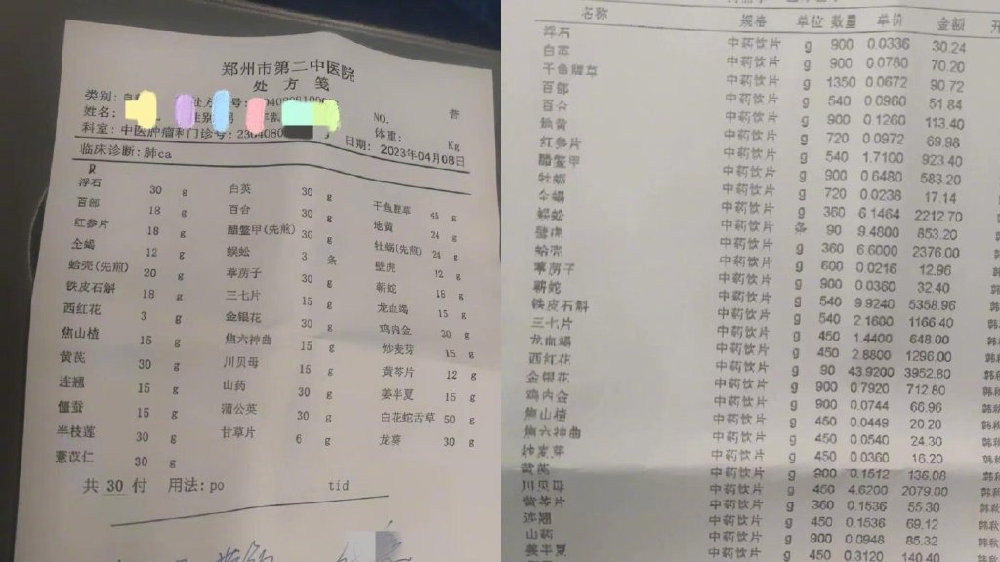 郑州市第二中医院
处方笺
类别:
NO.
普
姓名:
体重:
Kg
科室: 中医肿瘤科门诊号:
日期: 2023年04月08日
临床诊断:肺ca
R
浮石 30 g 白英 30 g 干鱼腥草 45 g
百部 18 g 百合 30 g 地黄 24 g
红参片 18 g 醋鳖甲(先煎) 30 g 牡蛎(先煎) 24 g
全蝎 12 g 蜈蚣 3 条 壁虎 12 g
蛤壳(先煎) 20 g 葶苈子 30 g 蕲蛇 18 g
铁皮石斛 18 g 三七片 15 g 龙血竭 15 g
西红花 3 g 金银花 30 g 鸡内金 30 g
焦山楂 15 g 焦六神曲 15 g 炒麦芽 15 g
黄芪 30 g 川贝母 15 g 黄芩片 12 g
连翘 15 g 山药 30 g 姜半夏 15 g
僵蚕 15 g 蒲公英 30 g 白花蛇舌草 50 g
半枝莲 30 g 甘草片 6 g 龙葵 30 g
薏苡仁 30 g
共 30 付 用法: po tid
名称 规格 单位 数量 单价 金额 开
浮石 中药饮片 g 900 0.0336 30.24
白英 中药饮片 g 900 0.0780 70.20
干鱼腥草 中药饮片 g 1350 0.0672 90.72
百部 中药饮片 g 540 0.0960 51.84
百合 中药饮片 g 900 0.1260 113.40
地黄 中药饮片 g 720 0.0972 69.98
红参片 中药饮片 g 540 1.7100 923.40
醋鳖甲 中药饮片 g 900 0.6480 583.20
牡蛎 中药饮片 g 720 0.0238 17.14
全蝎 中药饮片 g 360 6.1464 2212.70
蜈蚣 中药饮片 条 90 9.4800 853.20
壁虎 中药饮片 g 360 6.6000 2376.00
蛤壳 中药饮片 g 600 0.0216 12.96
葶苈子 中药饮片 g 900 0.0360 32.40
蕲蛇 中药饮片 g 540 9.9240 5358.96
铁皮石斛 中药饮片 g 540 2.1600 1166.40
三七片 中药饮片 g 450 1.4400 648.00
龙血竭 中药饮片 g 450 2.8800 1296.00
西红花 中药饮片 g 90 43.9200 3952.80
金银花 中药饮片 g 900 0.7920 712.80
鸡内金 中药饮片 g 900 0.0744 66.96
焦山楂 中药饮片 g 450 0.0449 20.20
焦六神曲 中药饮片 g 450 0.0540 24.30
炒麦芽 中药饮片 g 450 0.0360 16.20
黄芪 中药饮片 g 900 0.1512 136.08
川贝母 中药饮片 g 450 4.6200 2079.00
黄芩片 中药饮片 g 360 0.1536 55.30
连翘 中药饮片 g 450 0.1536 69.12
山药 中药饮片 g 900 0.0948 85.32
姜半夏 中药饮片 g 450 0.3120 140.40